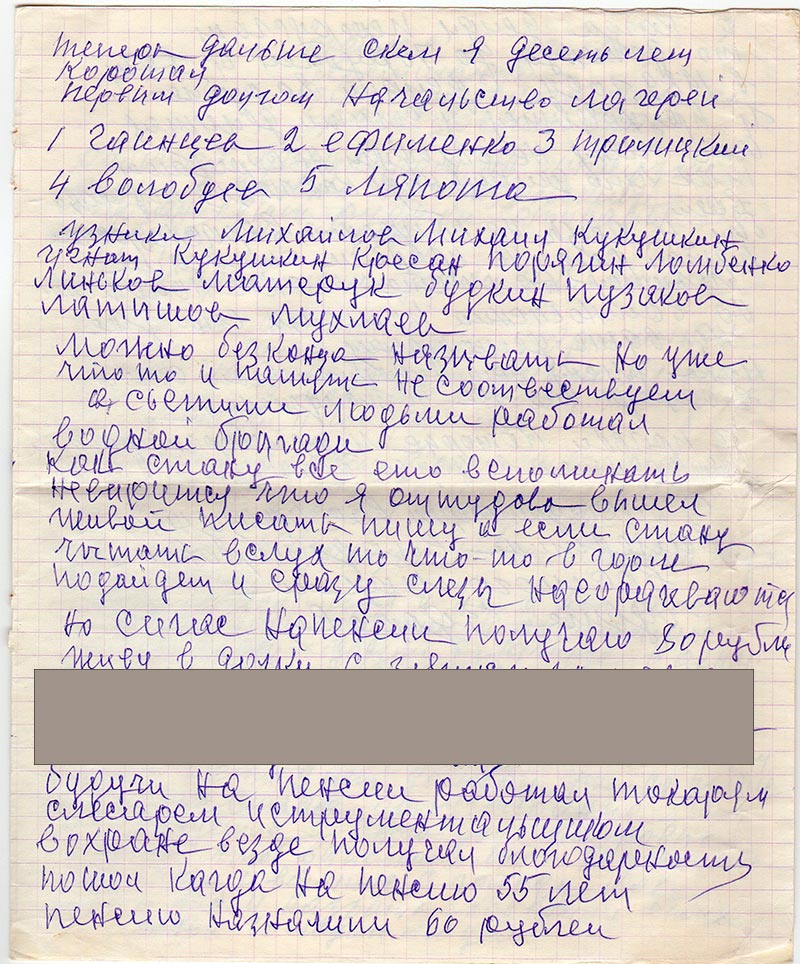 теперь дальше скем я десеть лет
коротал
первим долгом начальство лагерей
1 Гаинцев 2 ефименко 3 трилицкий
4 волобуев 5 Ляпота
узники михайлов михаил Кукушкин
игнат Кукушкин Кресан порягин Ломбенко
Линсков матерук будкин пузаков
латишов мухлаев
можно безконца називать но уже
что то и память несоотвествует
а сьетими людьми работал
водной бригади
как стану все ето вспоминать
неверится что я оттудова вишел
живой писать пишу а если стану
читать вслух то что-то в горле
подайдет и сразу слезы насорачваются
но сичас напенсии получаю 80 рубле
живу в
будучи на пенсии работал токарям
слесарем иструментальщиком
вохране везде получал благодарность
пошол кагда на пенсию 55 лет
пенсию назначили 60 рублей